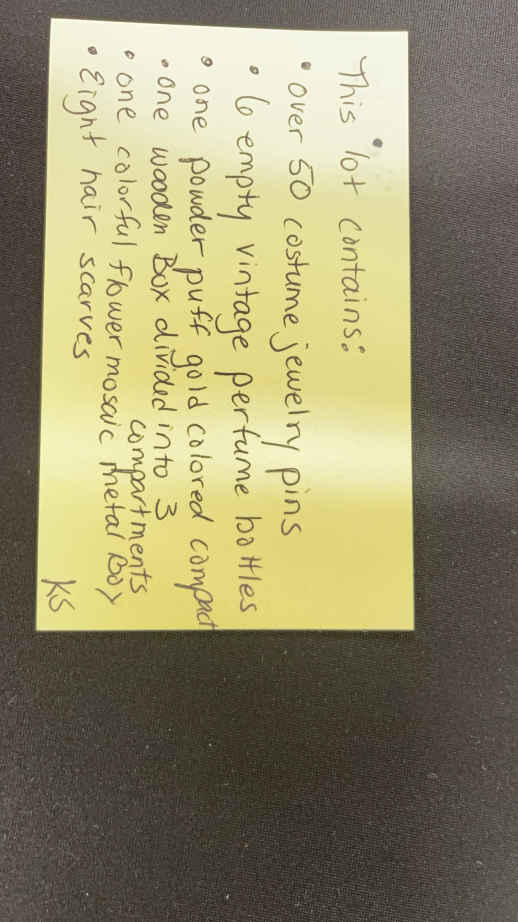 This lot contains:
• over 50 costume jewelry pins
• 6 empty vintage perfume bottles
• one powder puff gold colored compact
• one wooden Box divided into 3
compartments
• one colorful flower mosaic metal Box
• Eight hair scarves
KS